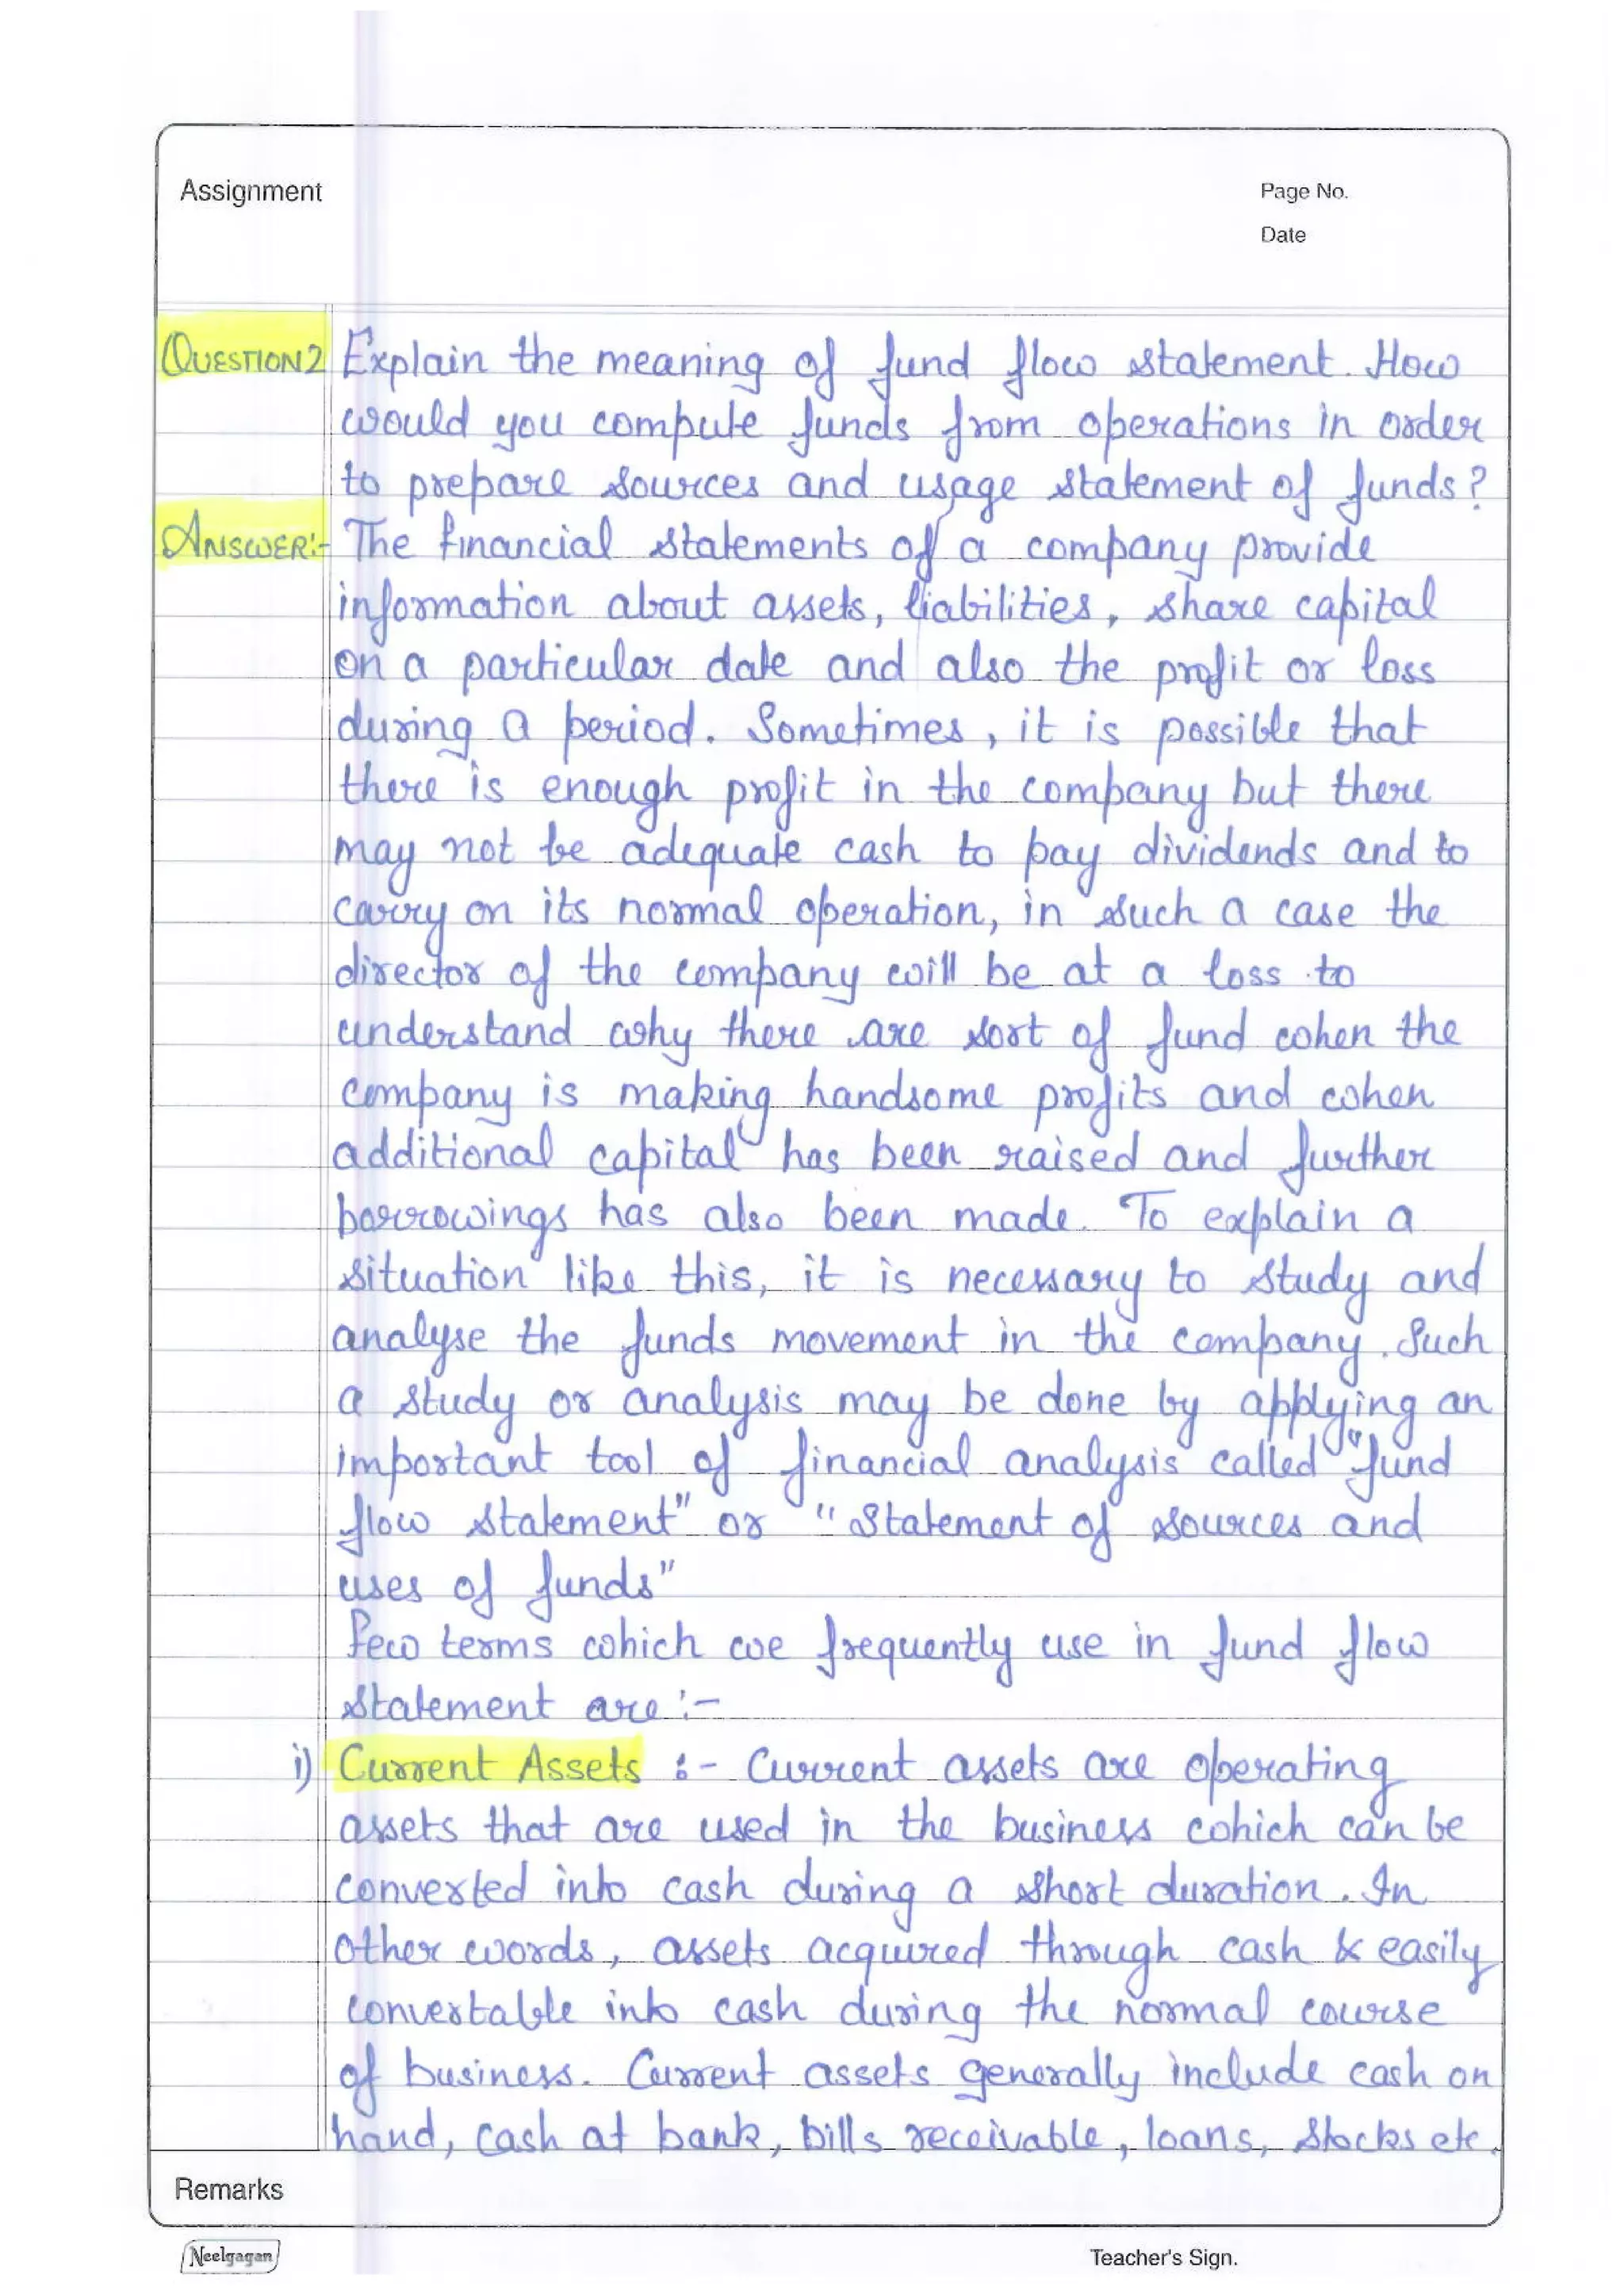 Assignment
Page No.
Date
QUESTION 2 Explain the meaning of fund flow statement. How
would you compute funds from operations in order
to prepare sources and usage statement of funds?
ANSWER:- The financial statements of a company provide
information about assets, liabilities, share capital
on a particular date and also the profit or loss
during a period. Sometimes, it is possible that
there is enough profit in the company but there
may not be adequate cash to pay dividends and to
carry on its normal operation, in such a case the
director of the company will be at a loss to
understand why there are sort of fund when the
company is making handsome profits and when
additional capital has been raised and further
borrowings has also been made. To explain a
situation like this, it is necessary to study and
analyse the funds movement in the company. Such
a study or analysis may be done by applying an
important tool of financial analysis called "fund
flow statement" or "Statement of sources and
uses of funds"
Few terms which we frequently use in fund flow
statement are :-
i) Current Assets :- Current assets are operating
assets that are used in the business which can be
converted into cash during a short duration. In
other words, assets acquired through cash & easily
convertable into cash during the normal course
of business. Current assets generally include cash on
hand, cash at bank, bills receivable, loans, stocks etc.
Remarks
Neelgagan
Teacher's Sign.